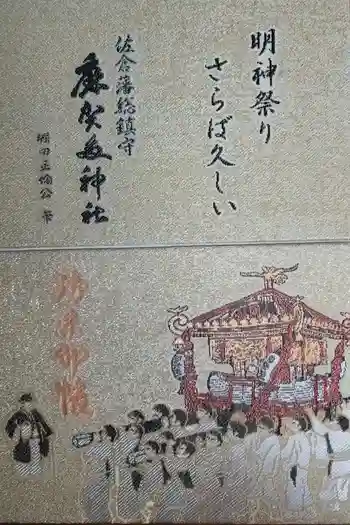 明神祭り
さらば久しい
佐倉藩総鎮守
麻賀多神社
堀田正倫公 筆
御朱印帳